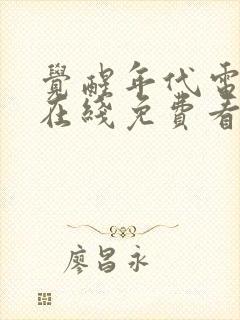 覺醒年代電
在綫免費看
廖昌永